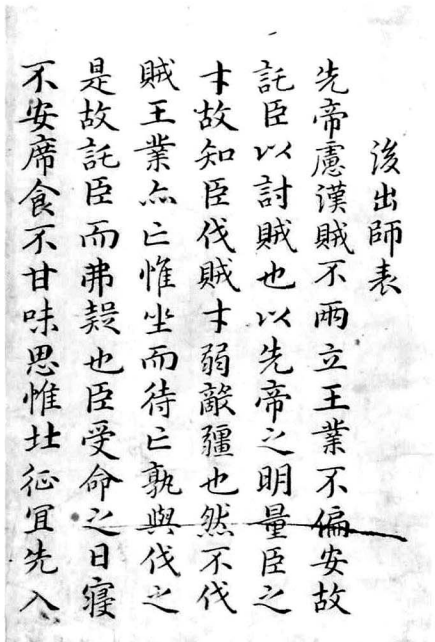 後出師表
先帝慮漢賊不兩立王業不偏安故
託臣以討賊也以先帝之明量臣之
才故知臣伐賊才弱敵彊也然不伐
賊王業亦亡惟坐而待亡孰與伐之
是故託臣而弗疑也臣受命之日寑
不安席食不甘味思惟北征宜先入